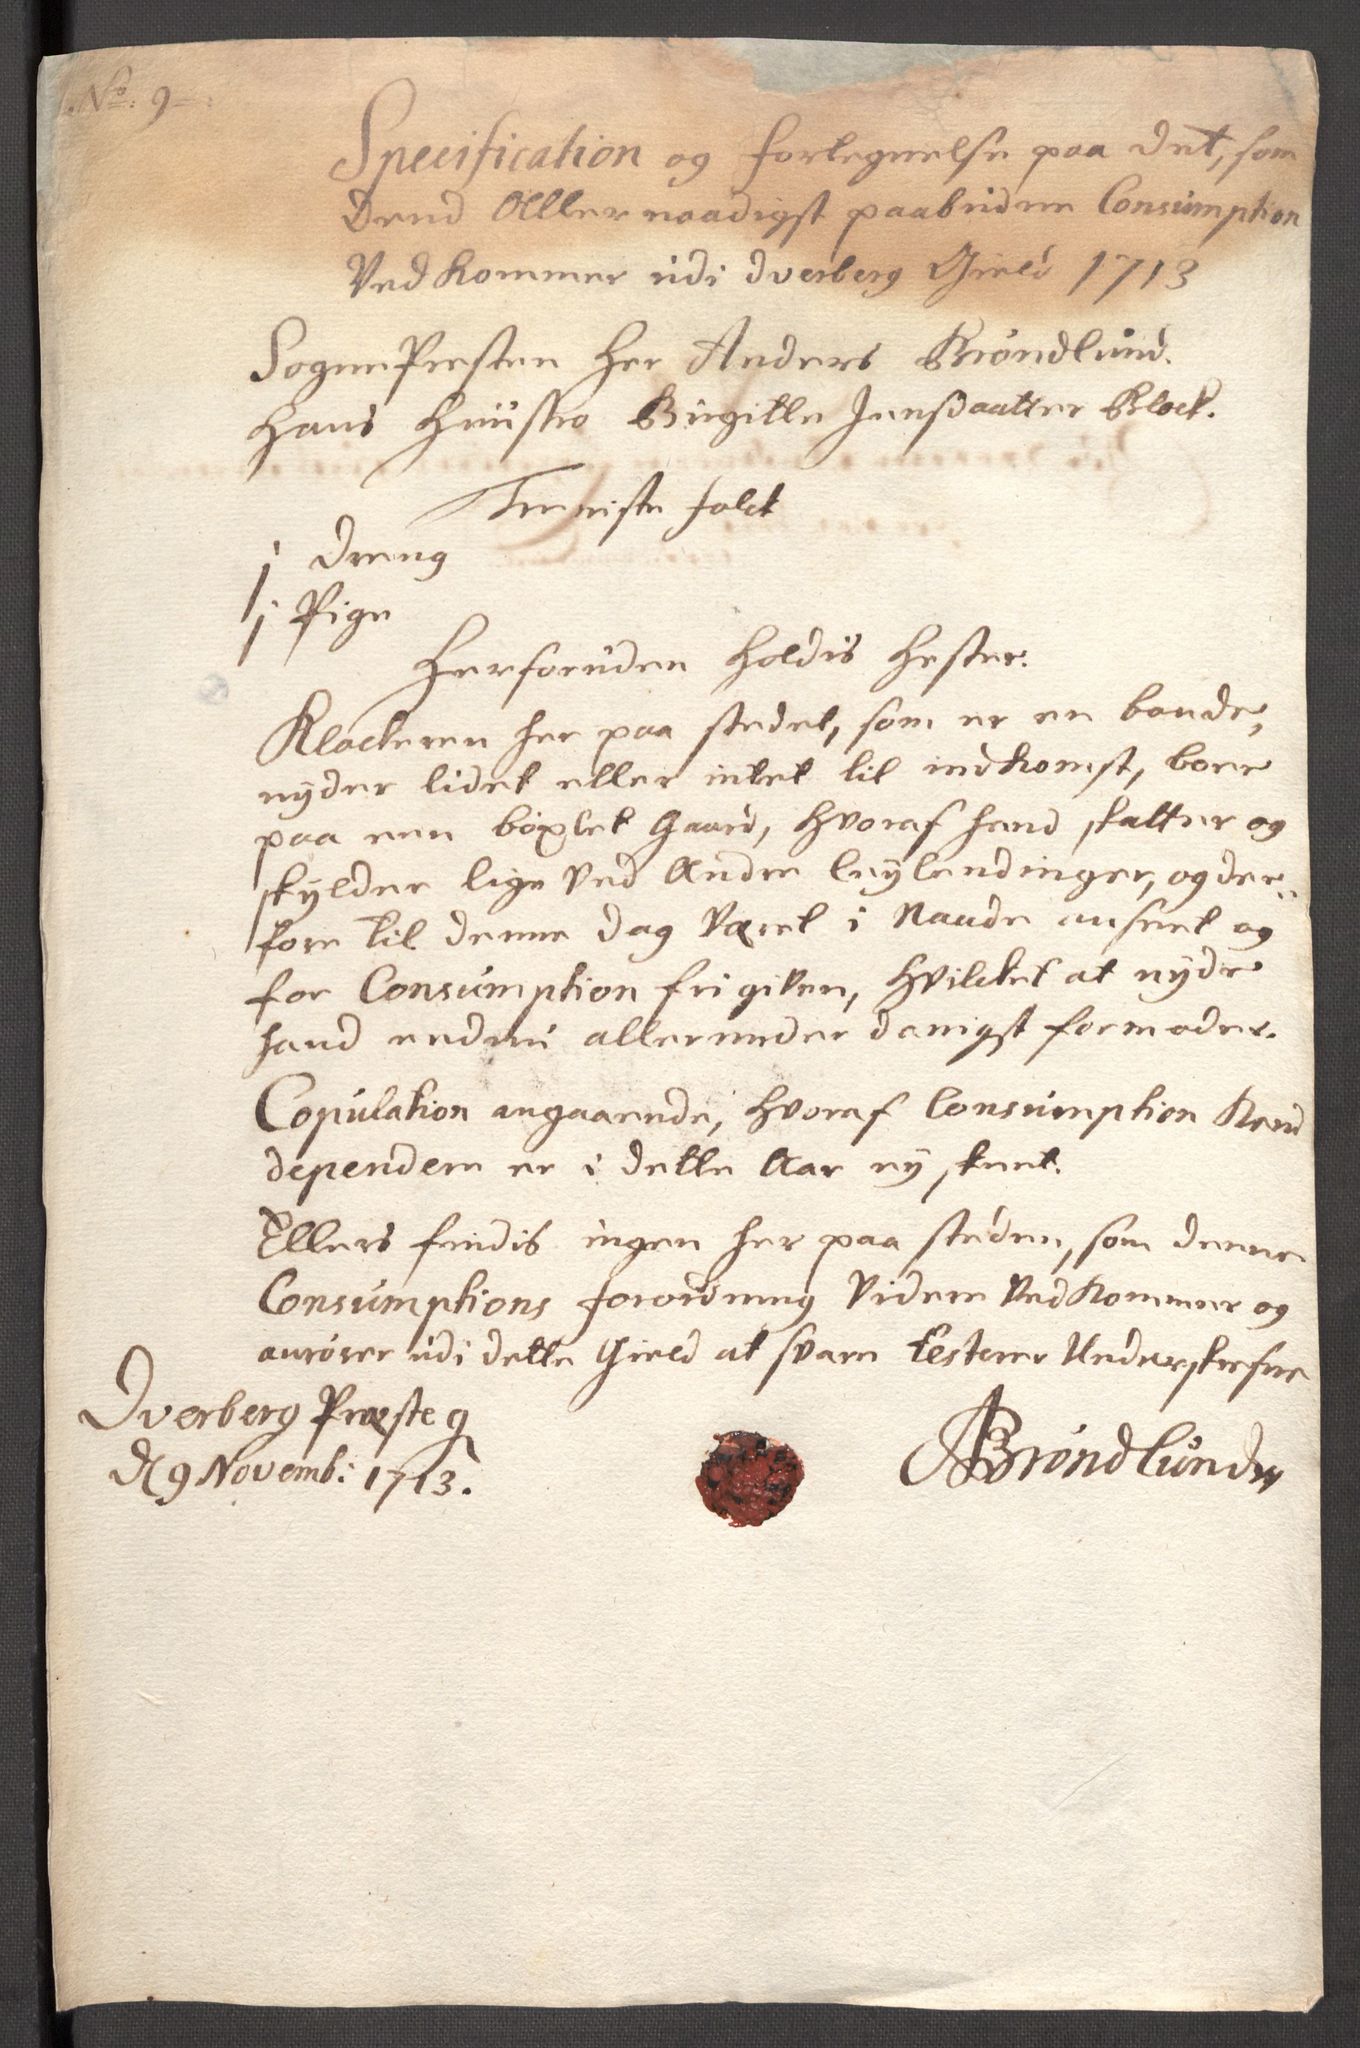 No: 9
Specification og fortegnelse paa det, som
dend Aller naadigst paabudne Consumption
Vedkommer udi dverberg Gield 1713
SognePresten Her Anders Brøndlund.
Hans Hustro Birgitte Jensdaatter Block.
Tieniste folck
1 Dreng
1 Pige
Herforuden holdis hester.
Klockeren her paa stedet, som er en bonde,
nyder lidet eller intet til indkomst, boer
paa een böxlet Gaard, hvoraf hand skatter og
skylder lige Ved Andre leylendinger, og der-
fore til denne dag Været i Naade anseet og
for Consumption fri given, hvilcket at nyde
hand endnu allerunder danigst formoder.
Copulation angaaende, hvoraf Consumption Kand
dependere er i dette Aar ey skeet.
Ellers findis ingen her paa steden, som denne
Consumptions forordning Videre Vedkommer og
anrörer udi dette Gield at svare testerer Underskrefne
Dverberg Præste g
D 9 Novemb: 1713.
ABröndlund